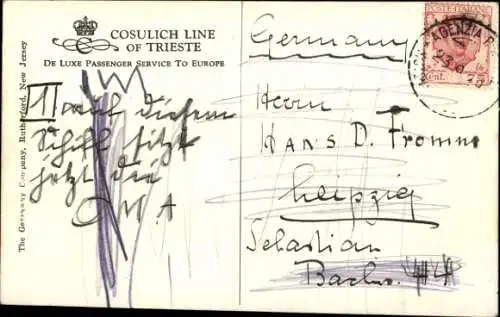 COSULICH LINE
OF TRIESTE
DE LUXE PASSENGER SERVICE TO EUROPE
The Company, Rutherford, New Jersey
diesem
Schiff sitzt
jetzt die
OMA
Germany
Herrn
HANS D. Fromme
Leipzig
Sebastian
Bachs. 44
POSTE ITALIANE
AGENZIA
Cent. 75